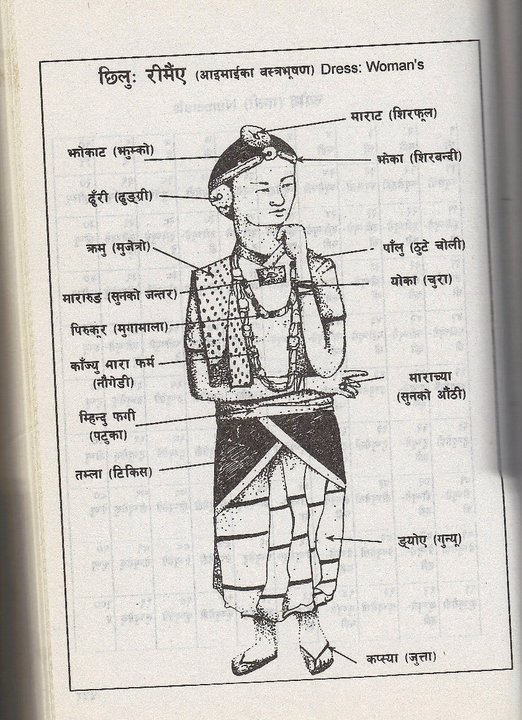 छिलुः रीमैंए (आइमाईका वस्त्रभूषण) Dress: Woman's
माराट (शिरफूल)
झोकाट (झुम्को)
झेका (शिरबन्दी)
ढुँरी (ढुङ्ग्री)
क्रमु (मुजेत्रो)
पाँलु (ठुटे चोली)
मारारुङ (सुनको जन्तर)
योका (चुरा)
पिरुकर (मुगामाला)
काँज्यु मारा फर्म
(नौगेडी)
माराच्या
(सुनको औंठी)
म्हिन्दु फगी
(पटुका)
तम्ला (टिकिस)
ड्योए (गुन्यू)
कप्स्या (जुत्ता)